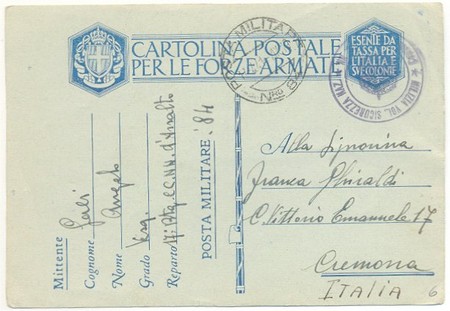 CARTOLINA POSTALE
PER LE FORZE ARMATE
ESENTE DA
TASSA PER
L'ITALIA E
SVE COLONIE
POSTA MILITARE
MILIZIA VOL. SICUREZZA NAZ
Mittente
Cognome
Nome Angelo
Grado
Reparto CC.NN. d'Assalto
POSTA MILITARE: 84
Alla Signorina
Franca Ghiraldi
C. Vittorio Emanuele 17
Cremona
ITALIA
6